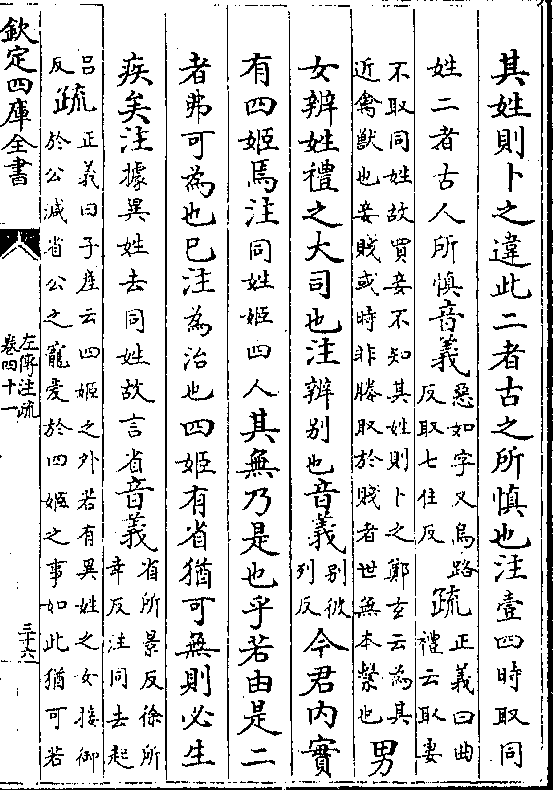 其姓則卜之違此二者古之所慎也注壹四時取同
姓二者古人所慎音義惡如字又烏路反取七住反疏正義曰曲禮云取妻
不取同姓故買妾不知其姓則卜之鄭玄云為其近禽獸也妾賤或時非媵取於賤者世無本繫也男
女辨姓禮之大司也注辨别也音義别彼列反今君内實
有四姬焉注同姓姬四人其無乃是也乎若由是二
者弗可為也已注為治也四姬有省猶可無則必生
疾矣注據異姓去同姓故言省音義省所景反徐所幸反注同去起
吕反疏正義曰子産云四姬之外若有異姓之女接御於公減省公之寵愛於四姬之事如此猶可若
欽定四庫全書
左傳注疏
卷四十一
三十六